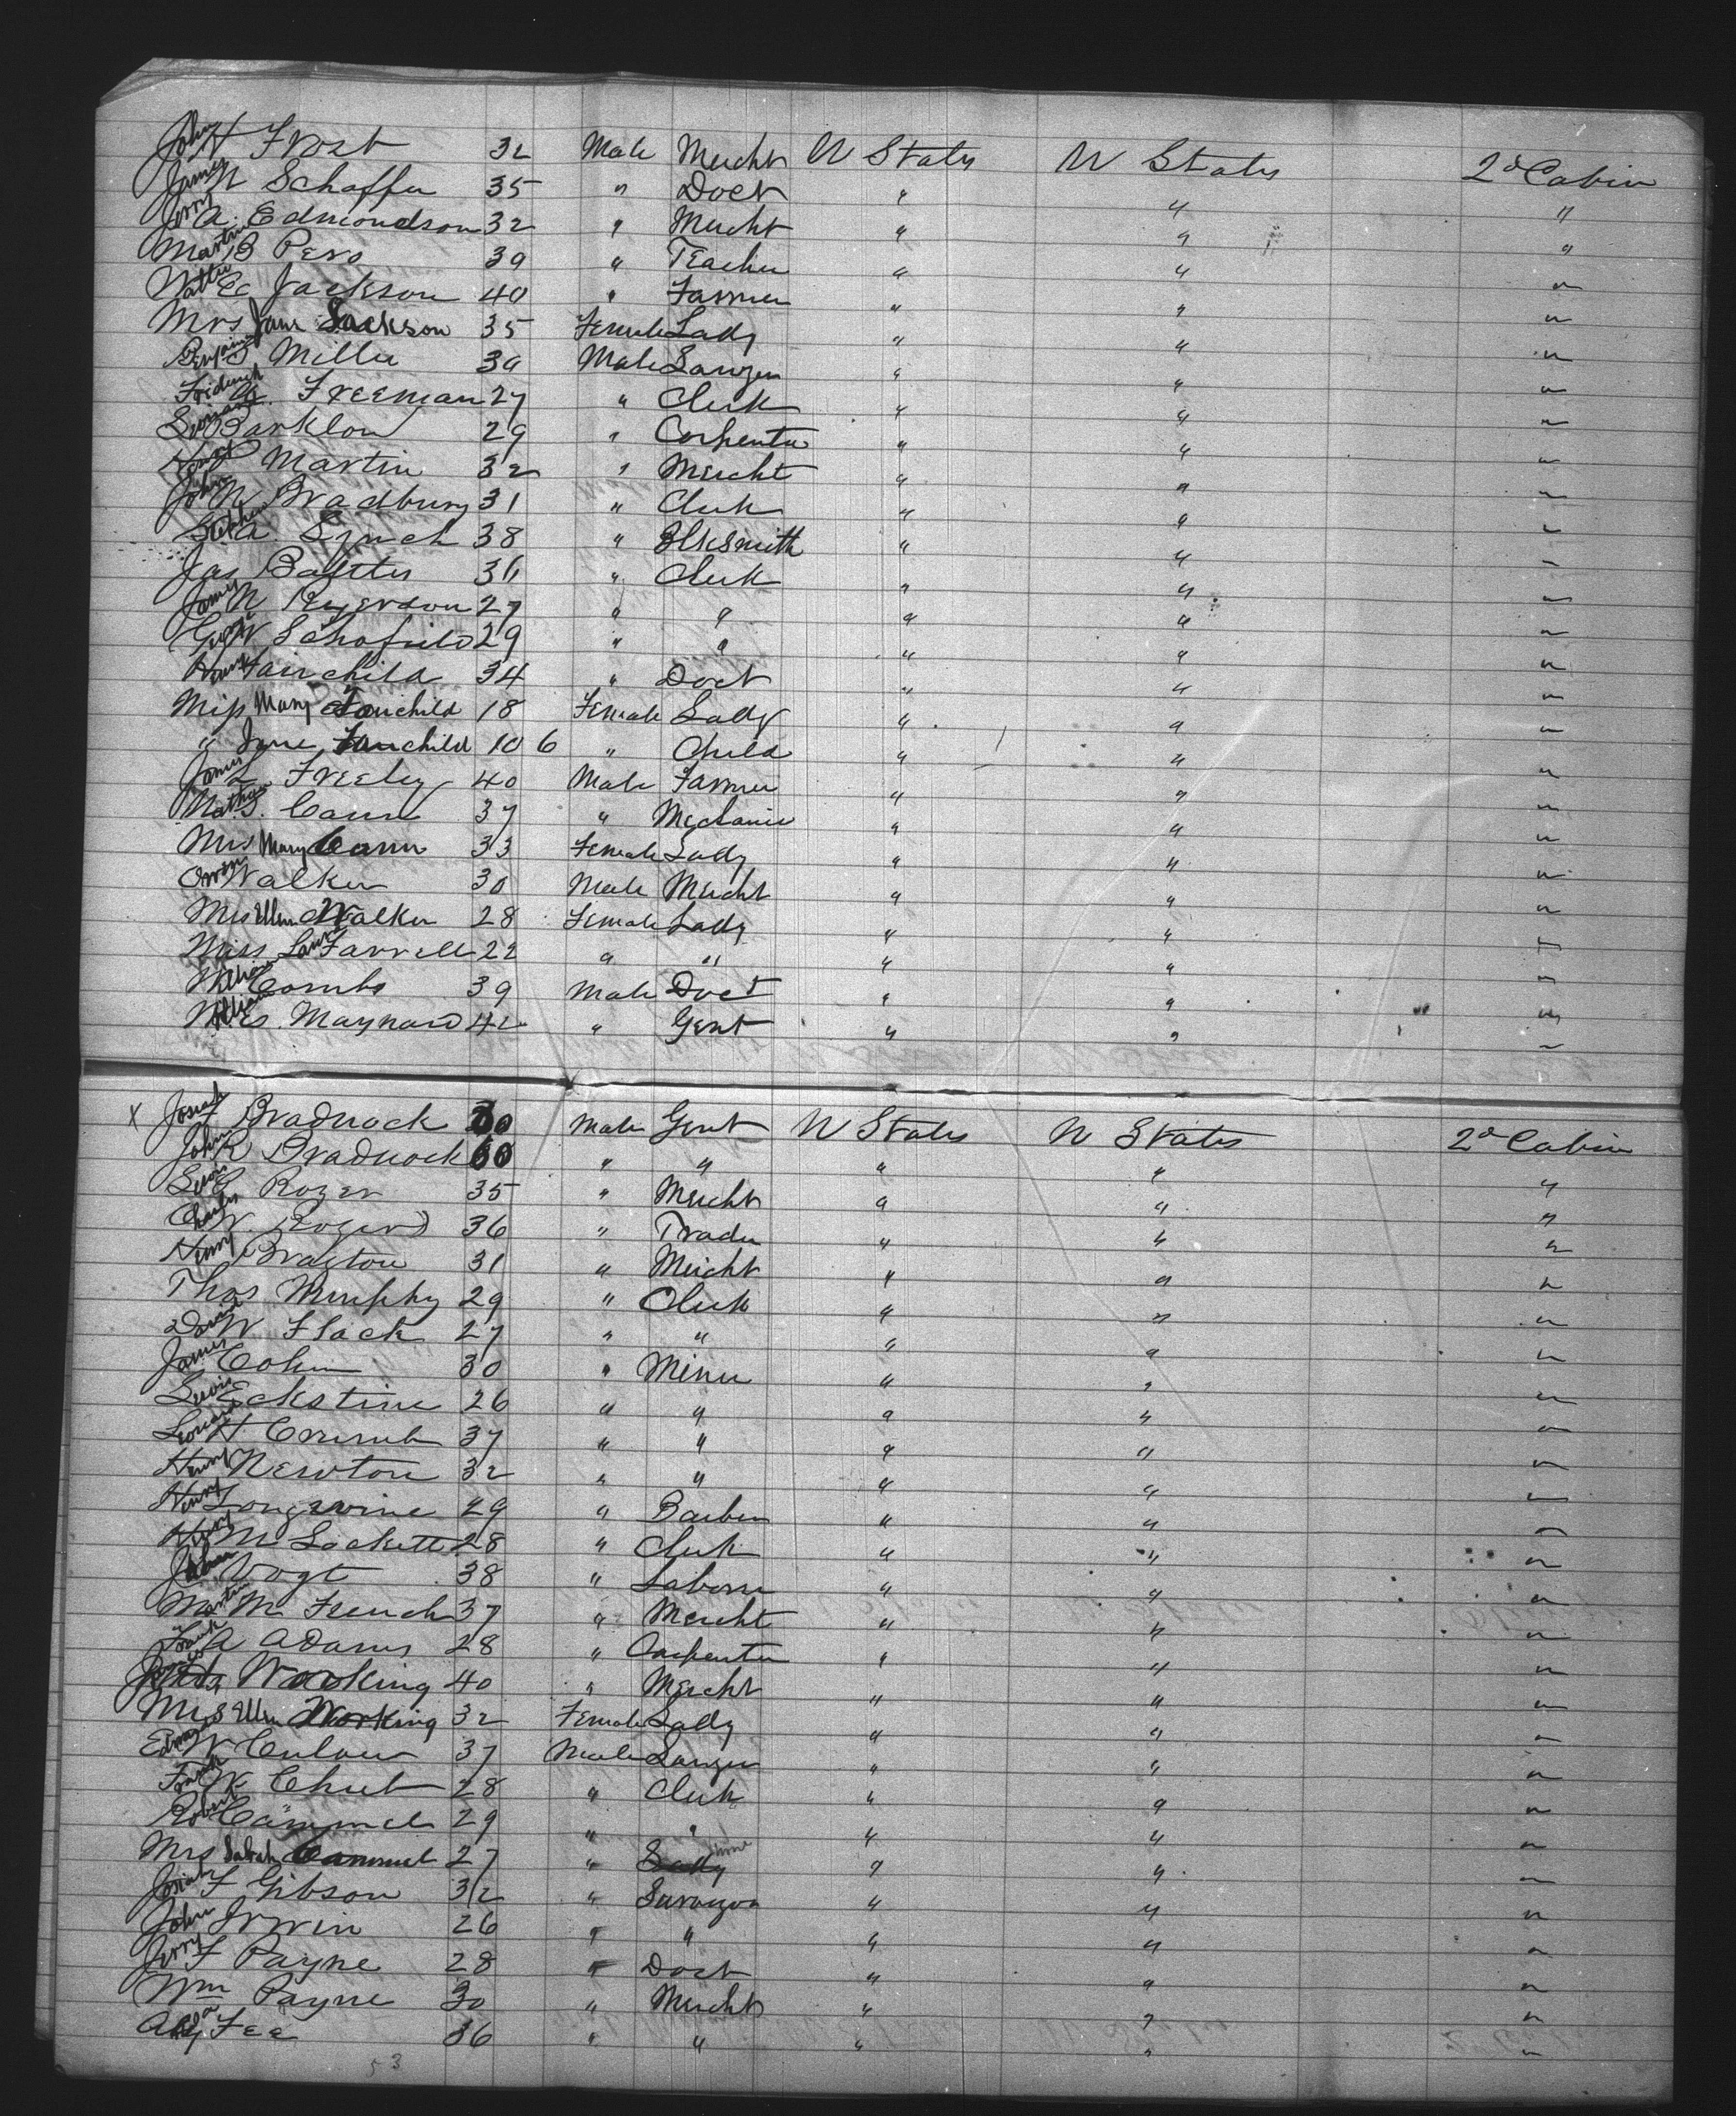 John H Frost 32 Male Mercht U States U States 2d Cabin
James N Schaffer 35 " Doct " " "
Jerry A. Edmondson 32 " Mercht " " "
Martin B Pero 39 " Teacher " " "
E Jackson 40 " Farmer " " "
Mrs Jane Jackson 35 Female Lady " " "
Benjamin S Miller 39 Male Lawyer " " "
Frederick G. Freeman 27 " Clerk " " "
Barklow 29 " Carpenter " " "
Henry P Martin 32 " Mercht " " "
John N Bradbury 31 " Clerk " " "
Stephen A. Lynch 38 " Blksmith " " "
Jas Baxter 36 " Clerk " " "
James N Ryerson 27 " " " " "
George W Schofield 29 " " " " "
Henry Fairchild 34 " Doct " " "
Miss Mary Fairchild 18 Female Lady " " "
" Jane Fairchild 10 6 " Child " " "
James L Freely 40 Male Farmer " " "
Nathan S. Cann 37 " Mechanic " " "
Mrs Mary Cann 33 Female Lady " " "
Owen Walker 30 Male Mercht " " "
Mrs Ellen Walker 28 Female Lady " " "
Miss Laura Farrell 22 " " " " "
William Combs 39 Male Doct " " "
William S. Maynard 42 " Gent " " "
X Josiah F Bradnack 30 Male Gent U States U States 2d Cabin
John R Bradnock 60 " " " " "
Levi G Rozer 35 " Mercht " " "
Charles W. Rogers 36 " Trader " " "
Henry Braxton 31 " Mercht " " "
Thos Murphy 29 " Clerk " " "
David W Flack 27 " " " " "
James Cohn 30 " Miner " " "
Lewis Eckstine 26 " " " " "
Leonard H Crumb 37 " " " " "
Henry Newton 32 " " " " "
Henry Longwine 29 " Barber " " "
Henry M Lockett 28 " Clerk " " "
John Vogt 38 " Laborer " " "
Martin M French 37 " Mercht " " "
Frank A Adams 28 " Carpenter " " "
Working 40 " Mercht " " "
Mrs Ellen Working 32 Female Lady " " "
Edward W Culow 37 Male Lawyer " " "
Frank W Chub 28 " Clerk " " "
Robert Cammel 29 " " " " "
Mrs Sarah Cammel 27 " Lady " " "
Josiah F Gibson 32 " Surveyor " " "
John Irwin 26 " " " " "
Jerry F Payne 28 " Doct " " "
Wm Payne 30 " Mercht " " "
Fee 36 " " " " "
53